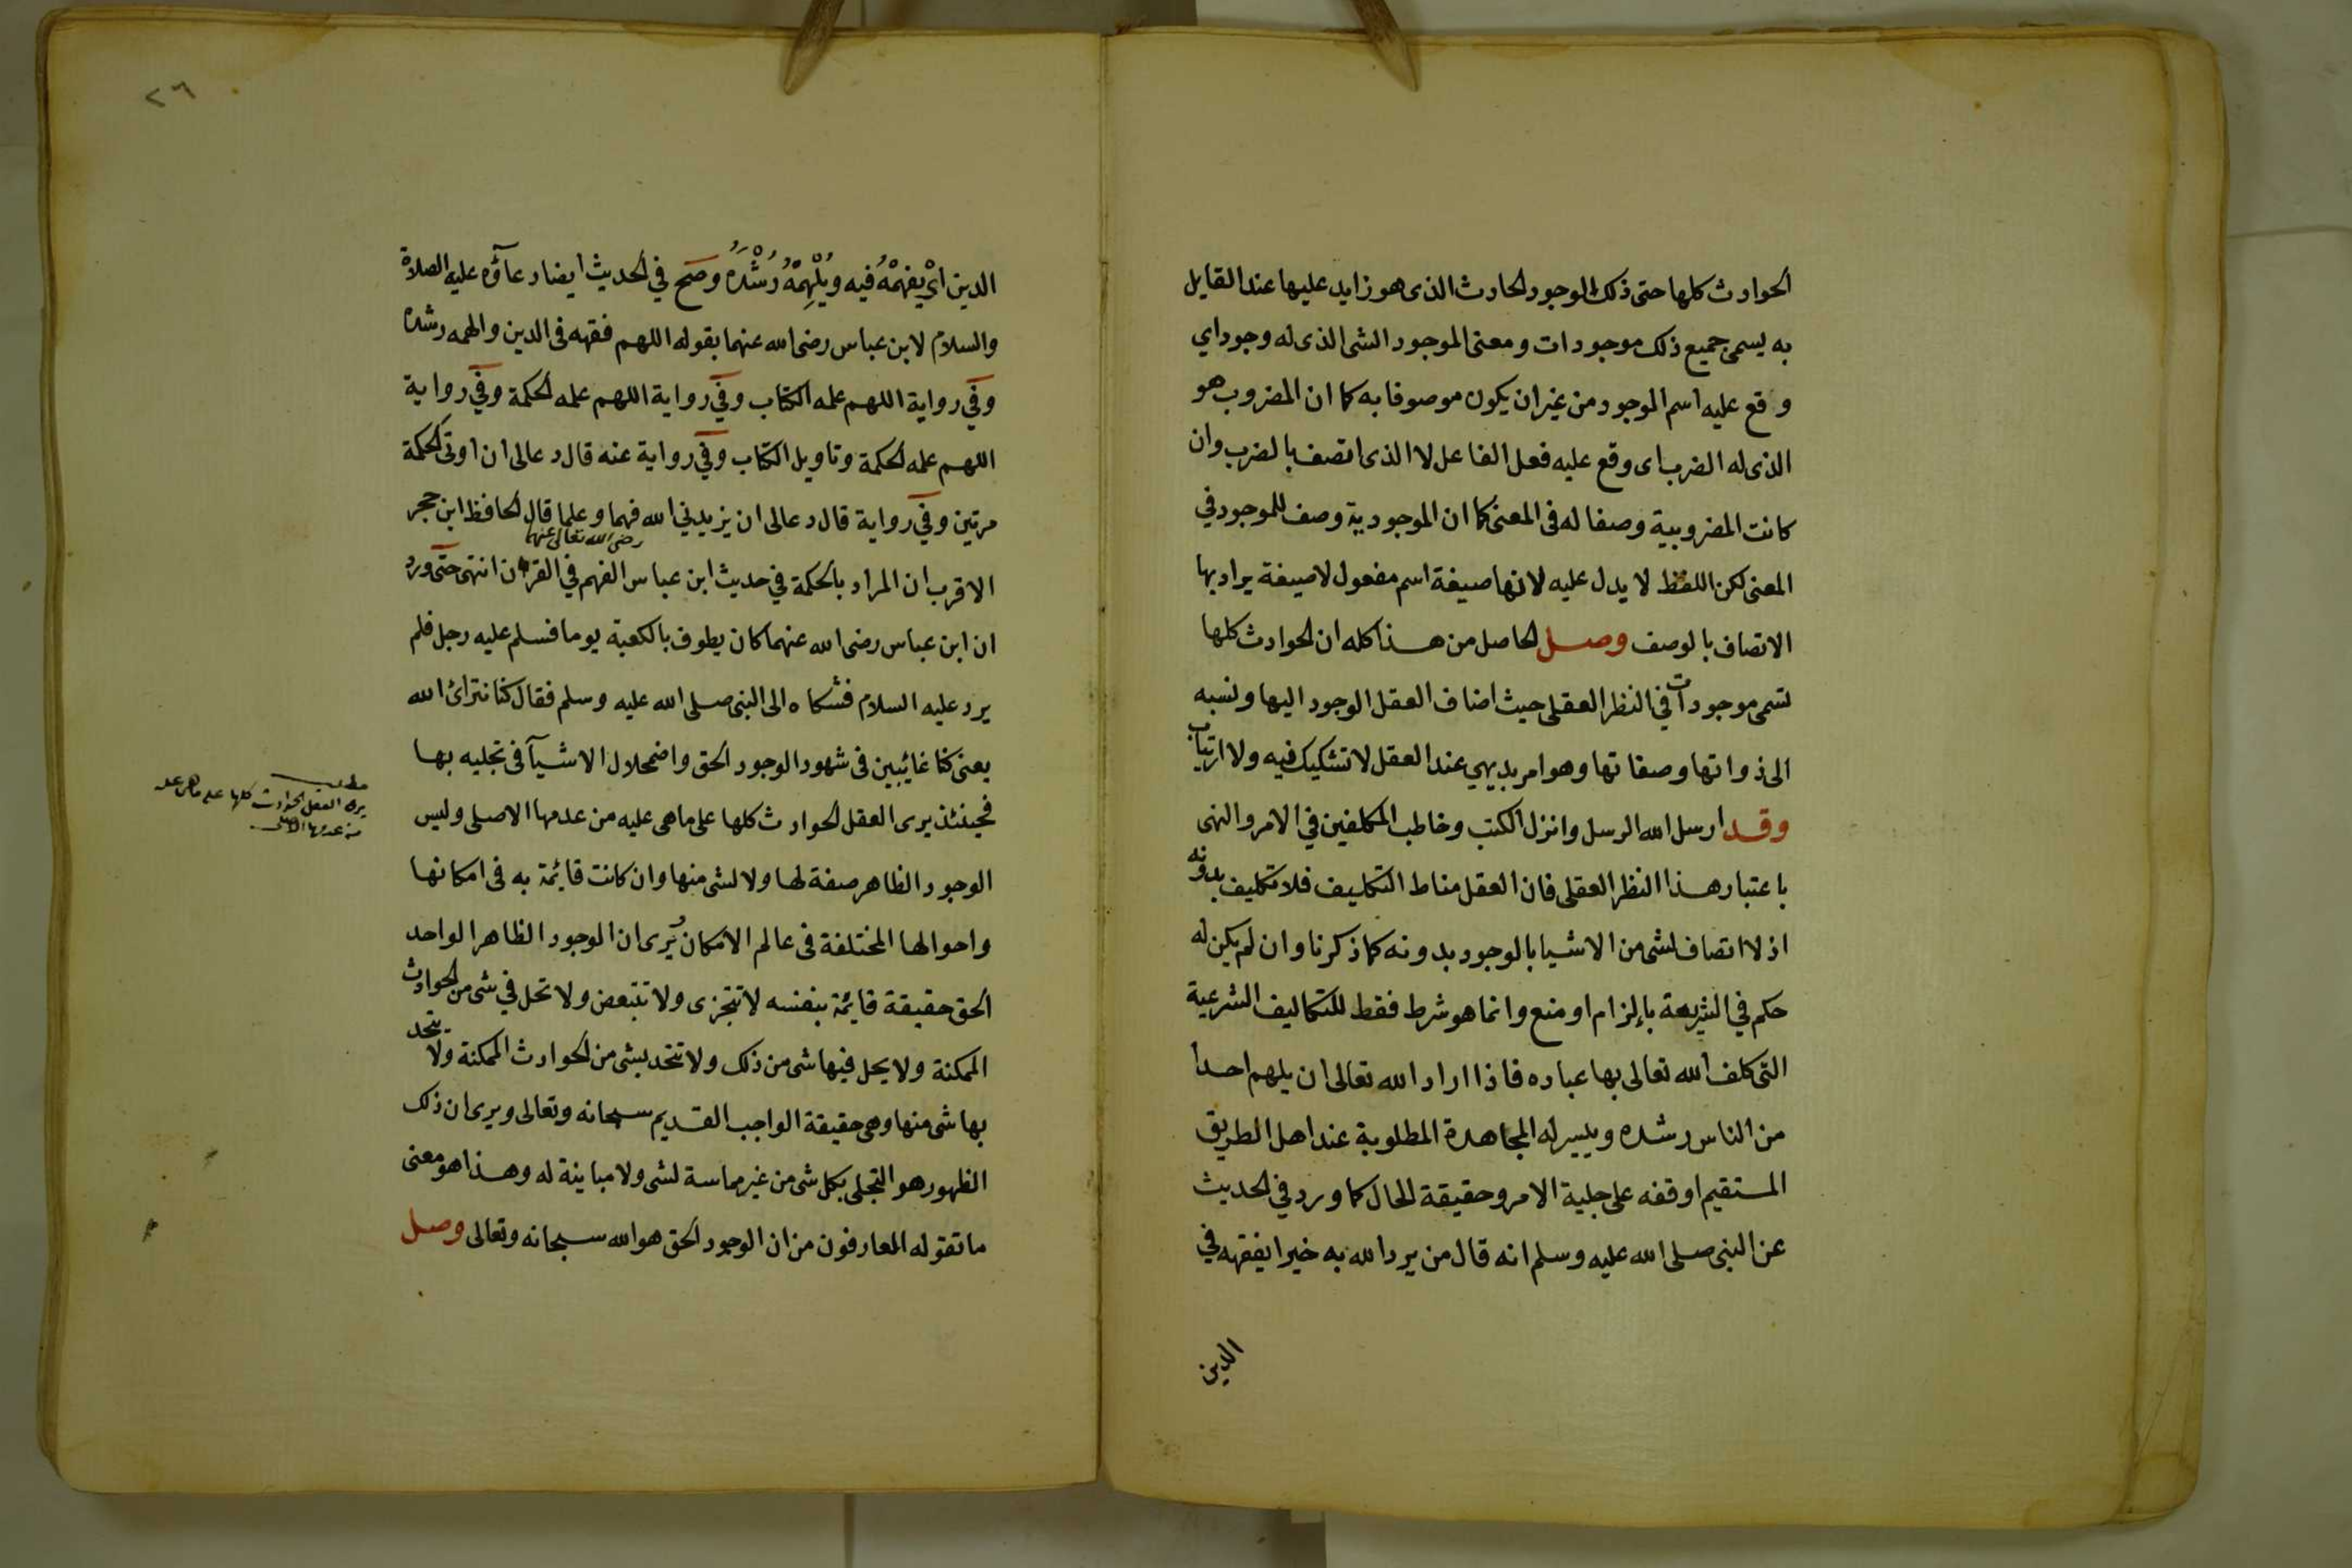 الحوادث كلها حتى ذلك الوجود الحادث الذى هو زايد عليها عند القايل
به يسمى جميع ذلك موجودات ومعنى الموجود الشى الذى له وجود اي
وقع عليه اسم الموجود من غير ان يكون موصوفا به كما ان المضروب هو
الذى له الضرب اى وقع عليه فعل الفاعل لا الذى اتصف بالضرب وان
كانت المضروبية وصفا له فى المعنى كما ان الموجودية وصف للموجود في
المعنى لكن اللفظ لا يدل عليه لانها صيغة اسم مفعول لا صيغة يراد بها
الاتصاف بالوصف وصل الحاصل من هذا كله ان الحوادث كلها
تسمى موجودات في النظر العقلى حيث اضاف العقل الوجود اليها ونسبه
الى ذواتها وصفاتها وهو امر بديهي عند العقل لا تشكيك فيه ولا ارتياب
وقد ارسل الله الرسل وانزل الكتب وخاطب المكلفين في الامر والنهى
باعتبار هذا النظر العقلى فان العقل مناط التكليف فلا تكليف بدونه
اذ لا اتصاف لشى من الاشيا بالوجود بدونه كما ذكرنا وان لم يكن له
حكم في الشريعة بإلزام او منع وانما هو شرط فقط للتكاليف الشرعية
التى كلف الله تعالى بها عباده فاذا اراد الله تعالى ان يلهم احدا
من الناس رشده وييسر له المجاهدة المطلوبة عند اهل الطريق
المستقيم اوقفه على جلية الامر وحقيقة الحال كما ورد في الحديث
عن النبى صلى الله عليه وسلم انه قال من يرد الله به خيرا يفقهه في
الدين
٢٦
الدين اىْ يفهمْهُ فيه ويُلْهِمْهُ رُشْدَهُ وصح في الحديث ايضا دعاؤه عليه الصلاة
والسلام لابن عباس رضى الله عنهما بقوله اللهم فقهه فى الدين والهمه رشده
وفي رواية اللهم علمه الكتاب وفي رواية اللهم علمه الحكمة وفي رواية
اللهم علمه الحكمة وتاويل الكتاب وفي رواية عنه قال دعالى ان اوتى الحكمة
مرتين وفي رواية قال دعالى ان يزيدني الله فهما وعلما قال الحافظ ابن حجر
رضى الله تعالى عنهما
الاقرب ان المراد بالحكمة في حديث ابن عباس الفهم في القران انتهى حتى ورد
ان ابن عباس رضى الله عنهما كان يطوف بالكعبة يوما فسلم عليه رجل فلم
يرد عليه السلام فشكاه الى النبى صلى الله عليه وسلم فقال كنا نترائ الله
يعنى كنا غائبين فى شهود الوجود الحق واضمحلال الاشيآ فى تجليه بها
فحينئذ يرى العقل الحوادث كلها على ماهى عليه من عدمها الاصلى وليس
الوجود الظاهر صفة لها ولا لشى منها وان كانت قايمة به فى امكانها
واحوالها المختلفة فى عالم الامكان ويرى ان الوجود الظاهر الواحد
الحق حقيقة قايمة بنفسه لا تتجزى ولا تتبعض ولا تحل في شى من الحوادث
الممكنة ولا يحل فيها شى من ذلك ولا تتحد بشى من الحوادث الممكنة ولا يتحد
بها شى منها وهى حقيقة الواجب القديم سبحانه وتعالى ويرى ان ذلك
الظهور هو التجلى بكل شى من غير مماسة لشى ولا مباينة له وهذا هو معنى
ما تقوله العارفون من ان الوجود الحق هو الله سبحانه وتعالى وصل
مطلب
يرى العقل الحوادث كلها على ماهى عليه
من عدمها الاصلى